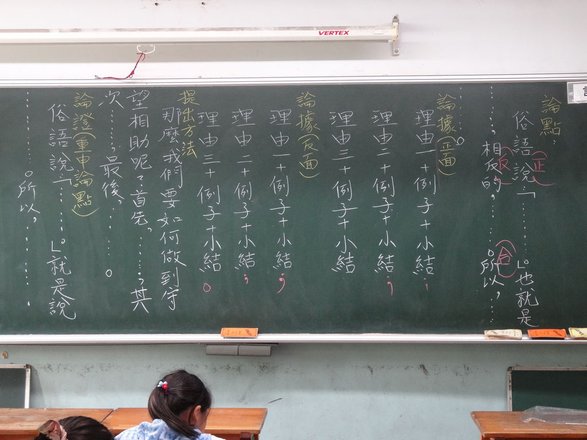 VERTEX
論點:
俗語說「……。」也就是
正
……,相反的,……。所以,……
反
合
……。
論據(正面)
理由一+例子+小結;
理由二+例子+小結;
理由三+例子+小結
論據(反面)
理由一+例子+小結;
理由二+例子+小結;
理由三+例子+小結。
提出方法
那麼我們要如何做到守
望相助呢?首先,……,其
次,……,最後,……。
論證(重申論點)
俗語說「……。」就是說
……。所以,……